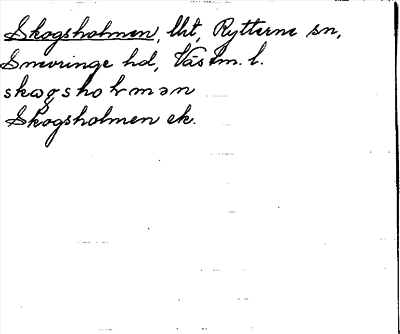 Skogsholmen, lht, Rytterne sn,
Snevringe hd, Västm. l.
skωgshoƚmən
Skogsholmen ek.